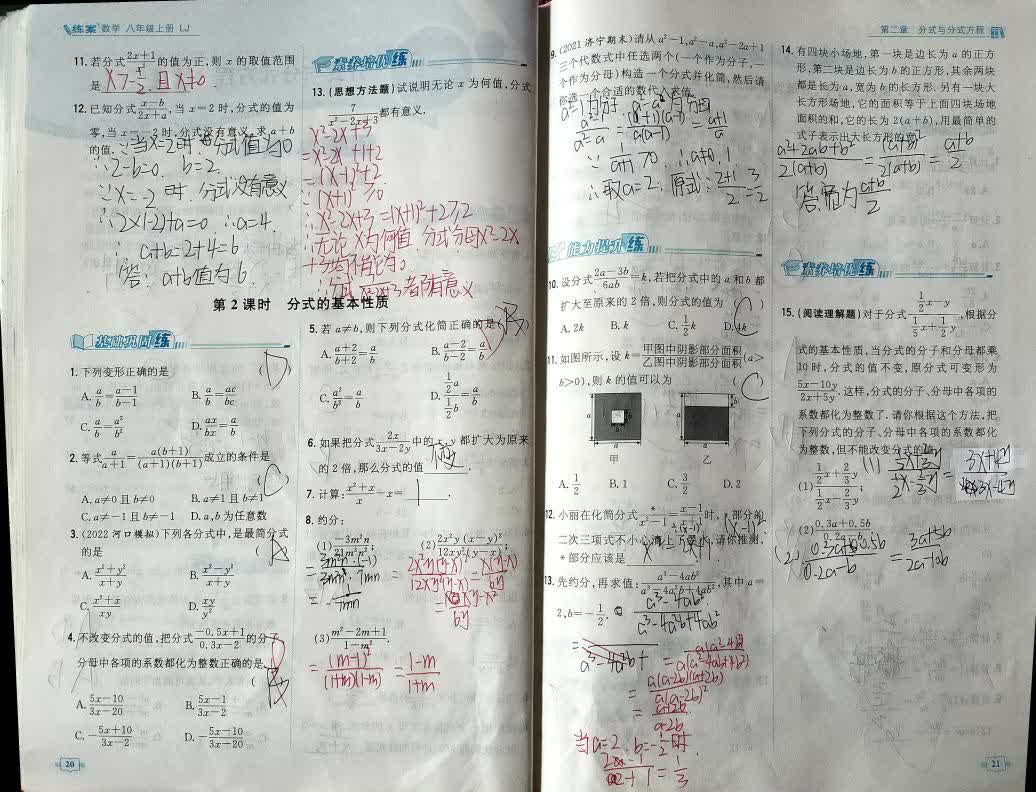 练案 数学 八年级上册 LJ
11. 若分式 2x+1/x² 的值为正,则 x 的取值范围
是 x>-1/2 且 x≠0
12. 已知分式 x-b/2x+a,当 x=2 时,分式的值为
零,当 x=-2 时,分式没有意义,求 a+b
的值.
∵当x=2时 分式值为0
∴2-b=0, b=2
∵x=-2时,分式没有意义
∴2×(-2)+a=0 ∴a=4.
∴a+b=2+4=6
答:a+b值为6.
素养培优练
13. (思想方法题)试说明无论 x 为何值,分式
7/x²-2x+3 都有意义.
x²-2x+3
=x²-2x+1+2
=(x-1)²+2
∵(x-1)²≥0
∴x²-2x+3=(x-1)²+2≥2
∴无论x为何值 分式分母x²-2x
+3均不能为0.
都有意义
第 2 课时 分式的基本性质
基础巩固练
1. 下列变形正确的是 ( D )
A. a/b=a-1/b-1 B. a/b=ac/bc
C. a/b=a²/b² D. ax/bx=a/b
2. 等式 a/a+1=a(b+1)/(a+1)(b+1) 成立的条件是
( C )
A. a≠0 且 b≠0 B. a≠1 且 b≠1
C. a≠-1 且 b≠-1 D. a,b 为任意数
3. (2022 河口模拟)下列各分式中,是最简分式
的是 ( A )
A. x²+y²/x+y B. x²-y²/x+y
C. x²+x/xy D. xy/y²
4. 不改变分式的值,把分式 -0.5x+1/0.3x-2 的分子、
分母中各项的系数都化为整数正确的是
A. 5x-10/3x-20 B. 5x-1/3x-2
C. -5x+10/3x-2 D. -5x-10/3x-20
5. 若 a≠b,则下列分式化简正确的是 ( )
A. a+2/b+2=a/b B. a-2/b-2=a/b
C. a²/b²=a/b D. ½a/½b=a/b
6. 如果把分式 2x/3x-2y 中的 x,y 都扩大为原来
的 2 倍,那么分式的值 不变 .
7. 计算:x²+x/x-x= 1 .
8. 约分:
(1) -3m²n/21m³n²; (2) 2x²y(x-y)²/12xy²(y-x);
=-1/7mn
(3) m²-2m+1/1-m².
=(m-1)²/(1+m)(1-m) =1-m/1+m
20
第二章 分式与分式方程
9. (2021 济宁期末)请从 a²-1,a²-a,a²-2a+1
三个代数式中任选两个(一个作为分子,一
个作为分母)构造一个分式并化简,然后请
你选一个合适的数代入求值.
a²-1为分子 a²-a为分母
a²-1/a²-a=(a+1)(a-1)/a(a-1)=a+1/a
∴a≠0,1
∴取a=2,原式:2+1/2=3/2
能力提升练
10. 设分式 2a-3b/6ab=k,若把分式中的 a 和 b 都
扩大至原来的 2 倍,则分式的值为 ( C )
A. 2k B. k C. ½k D. 4k
11. 如图所示,设 k=甲图中阴影部分面积/乙图中阴影部分面积(a>
b>0),则 k 的值可以为 ( C )
甲 乙
A. 1/2 B. 1 C. 3/2 D. 2
12. 小丽在化简分式 */x²-1=x-1/x+1 时,* 部分的
二次三项式不小心滴上了墨水,请你推测,
* 部分应该是
13. 先约分,再求值:a³-4ab²/a³-4a²b+4ab²,其中 a=
2,b=-1/2.
a³-4ab²/a³-4a²b+4ab²
=a(a²-4b²)/a(a²-4ab+4b²)
=a(a-2b)(a+2b)/a(a-2b)²
=a+2b/a-2b
当a=2,b=-1/2时
2-1/2+1=1/3
14. 有四块小场地,第一块是边长为 a 的正方
形,第二块是边长为 b 的正方形,其余两块
都是长为 a,宽为 b 的长方形.另有一块大
长方形场地,它的面积等于上面四块场地
面积的和,它的长为 2(a+b),用最简单的
式子表示出大长方形的宽.
a²+2ab+b²/2(a+b)=(a+b)²/2(a+b)=a+b/2
答:宽为a+b/2
素养培优练
15. (阅读理解题)对于分式 ½x-y/⅕x+½y,根据分
式的基本性质,当分式的分子和分母都乘
10 时,分式的值不变,原分式可变形为
5x-10y/2x+5y.这样,分式的分子、分母中各项的
系数都化为整数了.请你根据这个方法,把
下列分式的分子、分母中各项的系数都化
为整数,但不能改变分式的值.
(1) ½x+⅔y/½x-⅔y; =3x+4y/3x-4y
(2) 0.3a+0.5b/0.2a-b.
(2) 0.3a+0.5b/0.2a-b =3a+5b/2a-10b
21